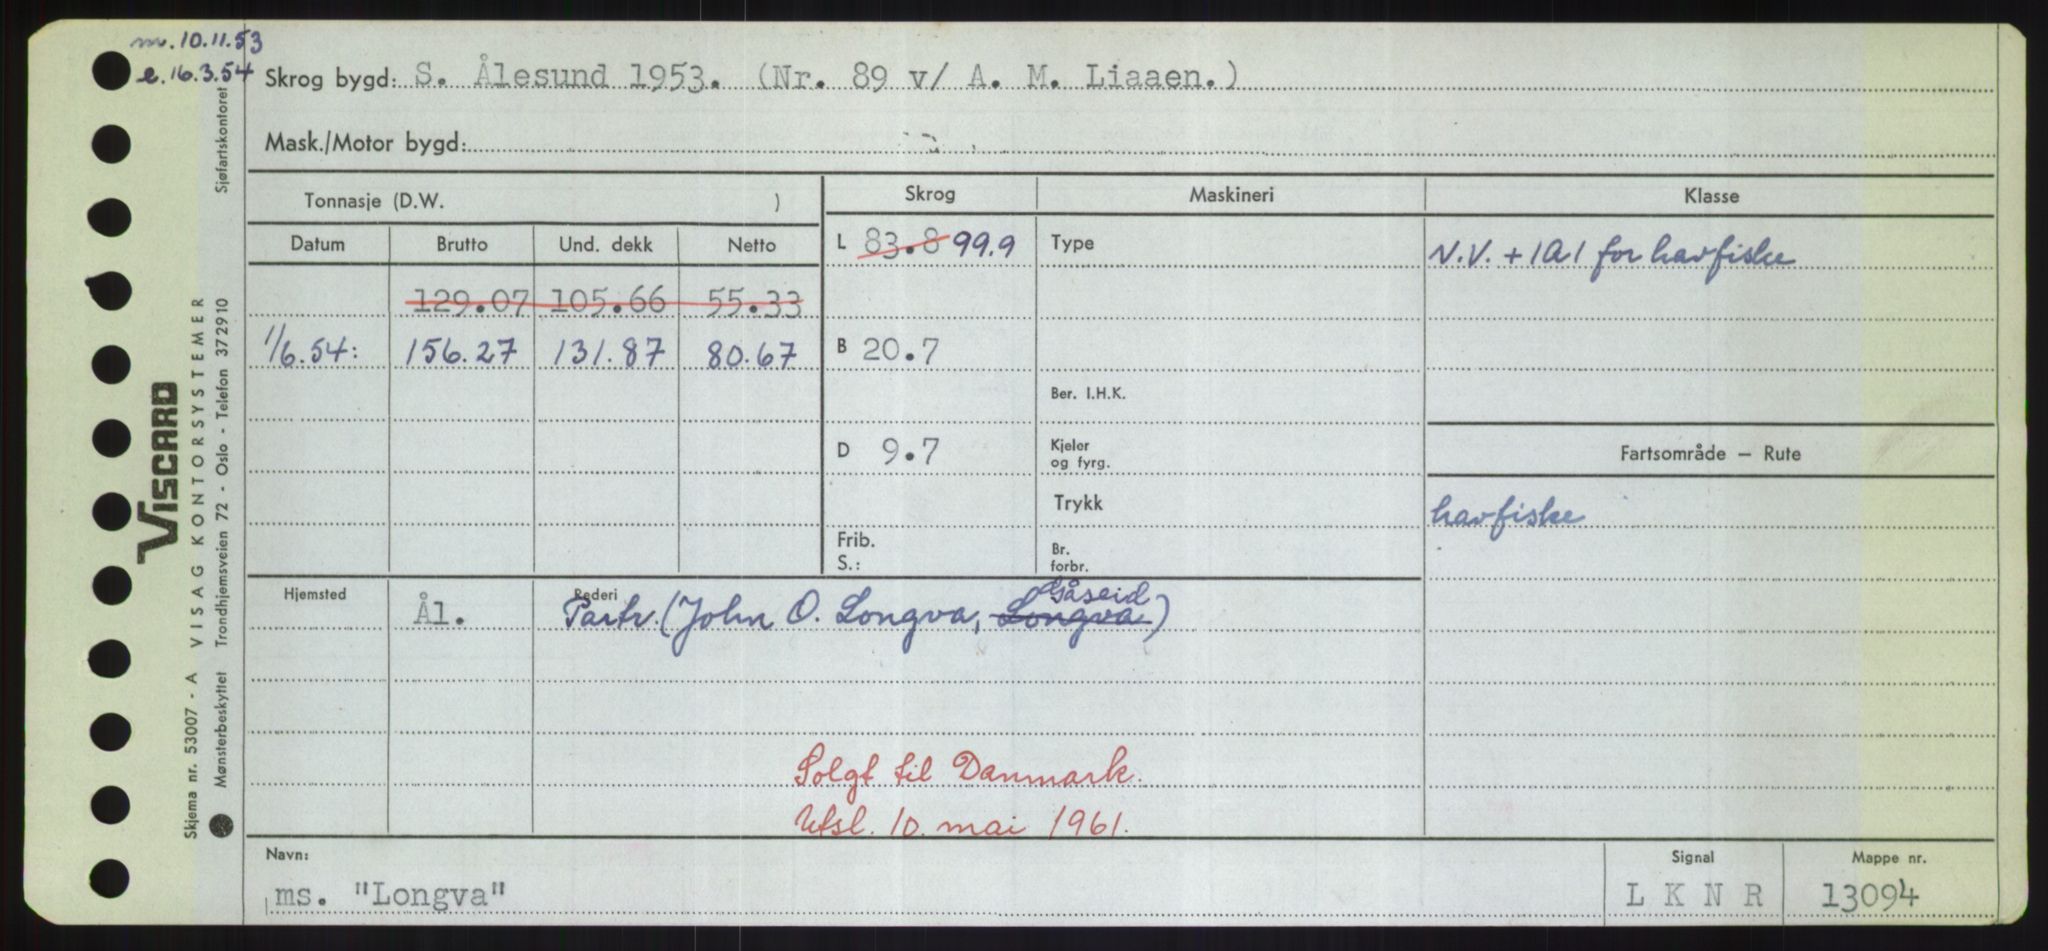 m. 10.11.53
e. 16.3.54
Skrog bygd: S. Ålesund 1953. (Nr. 89 v/ A. M. Liaaen.)
Mask./Motor bygd:
Tonnasje (D.W. )
Skrog
Maskineri
Klasse
Datum Brutto Und. dekk Netto
L 83.8 99.9
Type
N.V. + 1A1 for havfiske
129.07 105.66 55.33
1/6.54: 156.27 131.87 80.67
B 20.7
Ber. I.H.K.
D 9.7
Kjeler
og fyrg.
Fartsområde — Rute
Trykk
havfiske
Frib.
S.:
Br.
forbr.
Hjemsted Ål.
Rederi
Gåseid
Partr. (John O. Longva, Longva)
Solgt til Danmark.
Utsl. 10. mai 1961.
Navn:
ms. "Longva"
Signal
L K N R
Mappe nr.
13094
VISCARD
Skjema nr. 53007 - A VISAG KONTORSYSTEMER
Mønsterbeskyttet Trondhjemsveien 72 - Oslo - Telefon 372910
Sjøfartskontoret